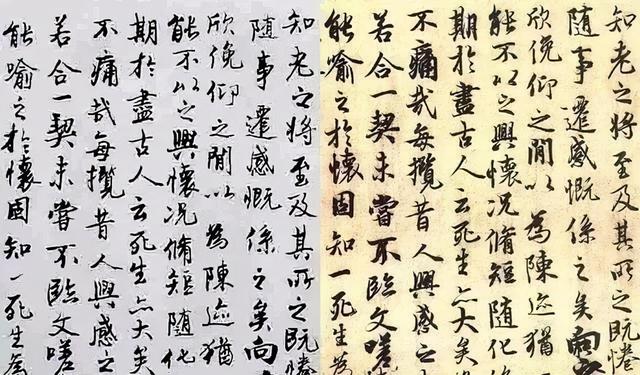 知老之将至及其所之既惓
随事遷感慨係之矣向
欣俛仰之間以為陳迹猶
能不以之興懷况脩短随化
期於盡古人云死生亦大矣
不痛哉每攬昔人興感之
若合一契未嘗不臨文嗟
能喻之於懷固知一死生為
知老之将至及其所之既惓
随事遷感慨係之矣向
欣俛仰之間以為陳迹猶
能不以之興懷况脩短随化
期於盡古人云死生亦大矣
不痛哉每攬昔人興感之
若合一契未嘗不臨文嗟
能喻之於懷固知一死生為